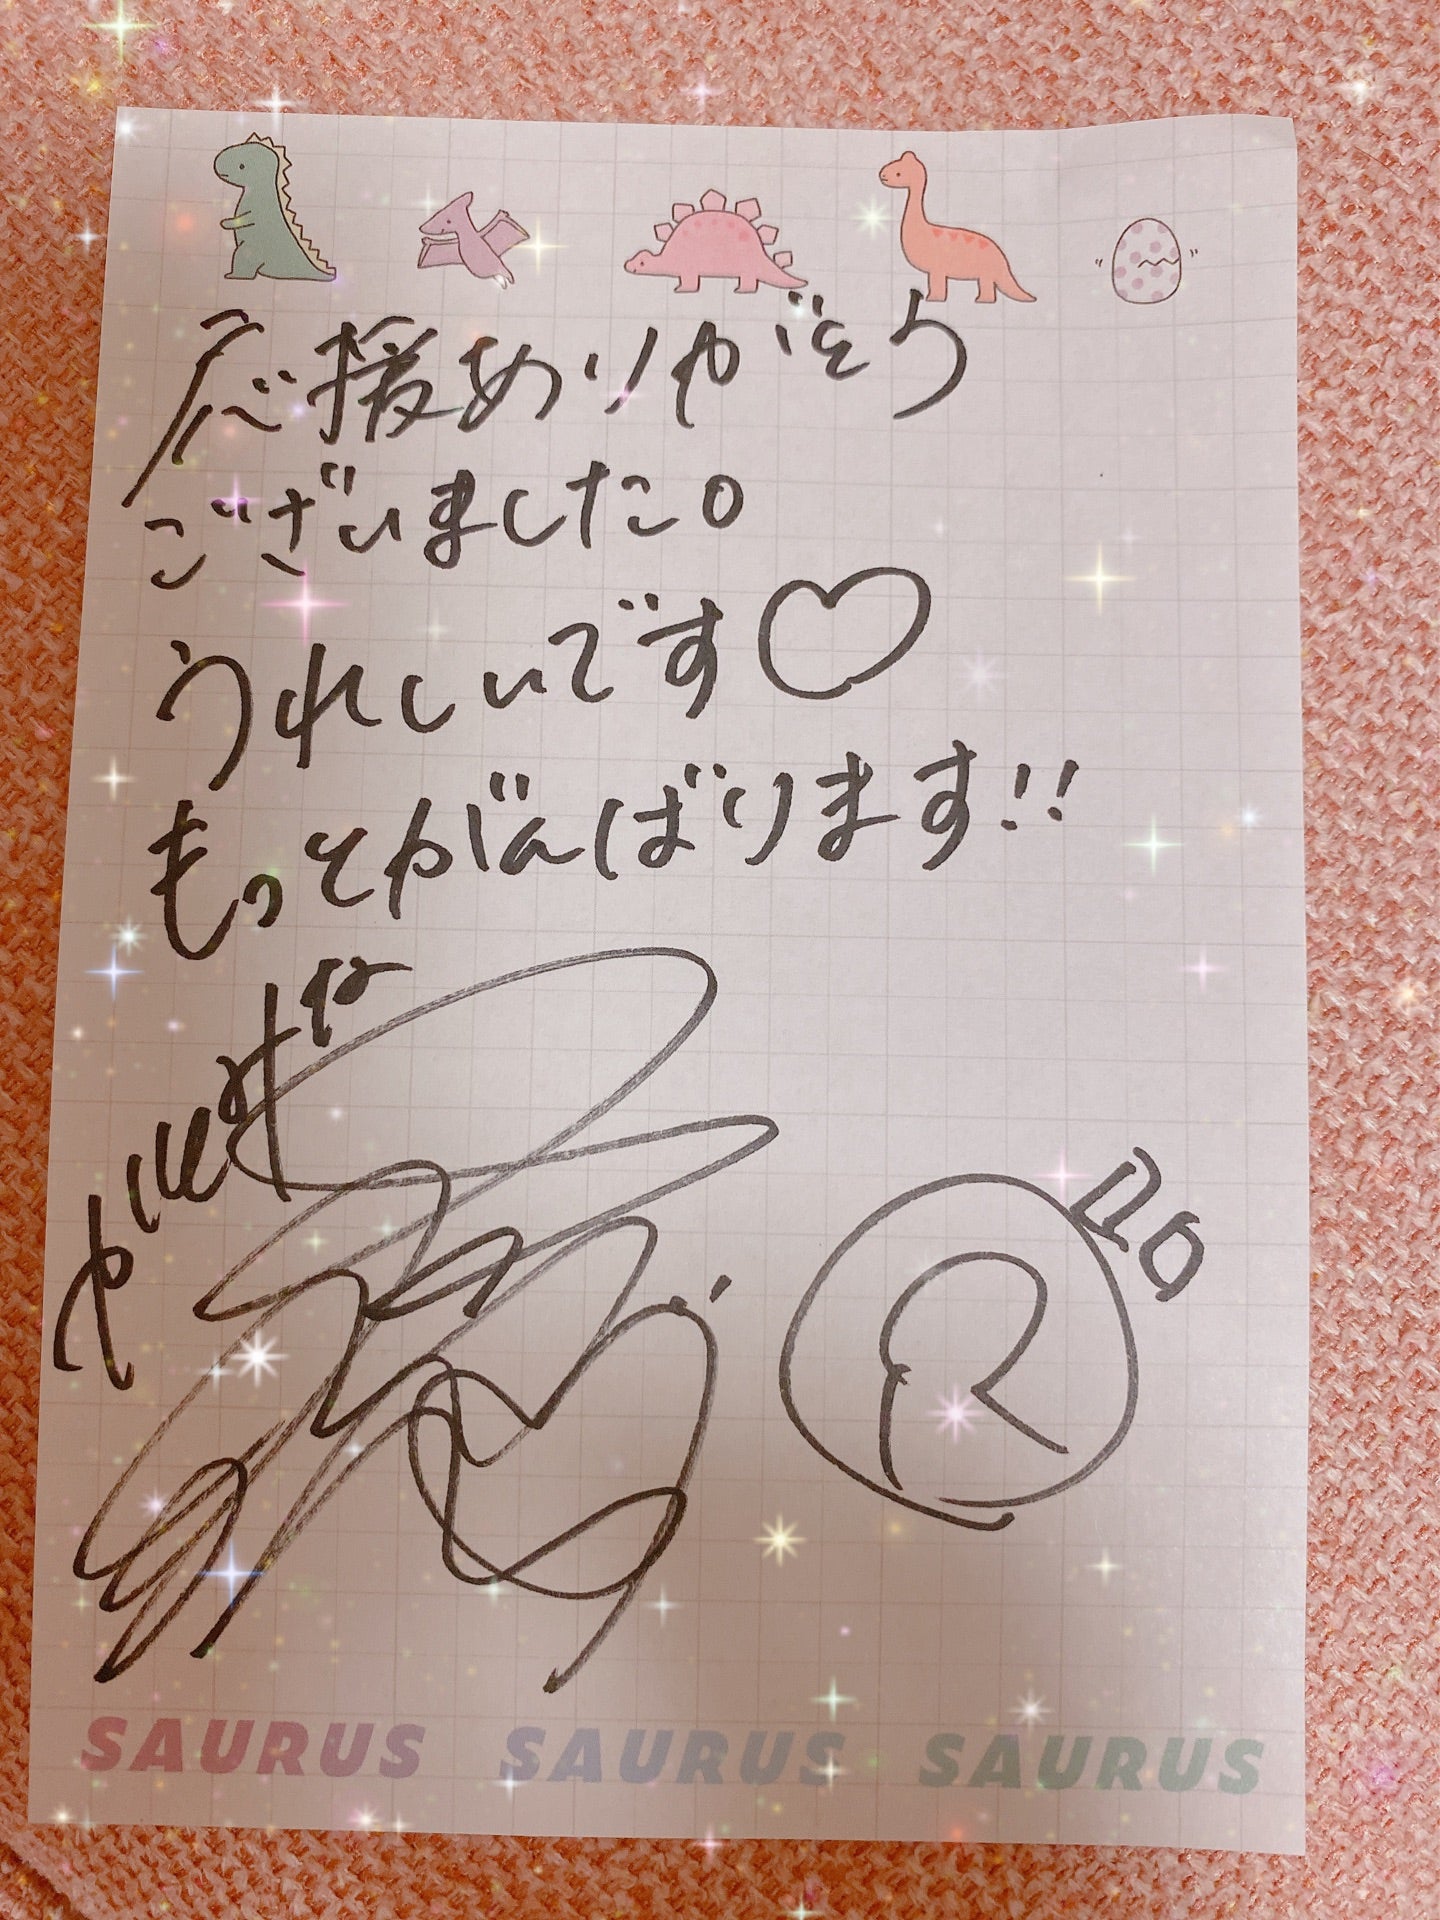 応援ありがとう
ございました。
うれしいです♡
もっとがんばります!!
R
SAURUS SAURUS SAURUS